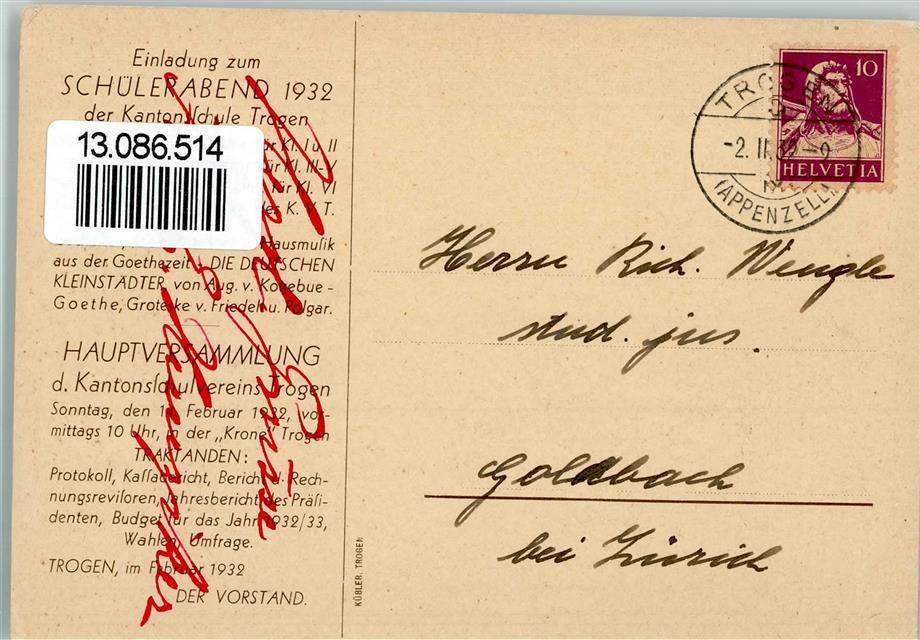 Einladung zum
SCHÜLERABEND 1932
der Kantonsſchule Trogen
für Kl. I u. II
für Kl. III-V
für Kl. VI
des K. V. T.
13.086.514
Hausmuſik
aus der Goethezeit - DIE DEUTSCHEN
KLEINSTÄDTER von Aug. v. Kotzebue -
Goethe, Groteske v. Friedell u. Polgar.
HAUPTVERSAMMLUNG
d. Kantonsſchulvereins Trogen
Sonntag, den Februar 1932, vor-
mittags 10 Uhr, in der „Krone" Trogen
TRAKTANDEN:
Protokoll, Kaſſabericht, Bericht d. Rech-
nungsreviſoren, Jahresbericht des Präſi-
denten, Budget für das Jahr 1932/33,
Wahlen, Umfrage.
TROGEN, im Februar 1932
DER VORSTAND.
KÜBLER, TROGEN
TROGEN
-2. II. 32 -9
(APPENZELL)
10
HELVETIA
Herrn Rich. Wengle
stud. jus.
Goldbach
bei Zürich